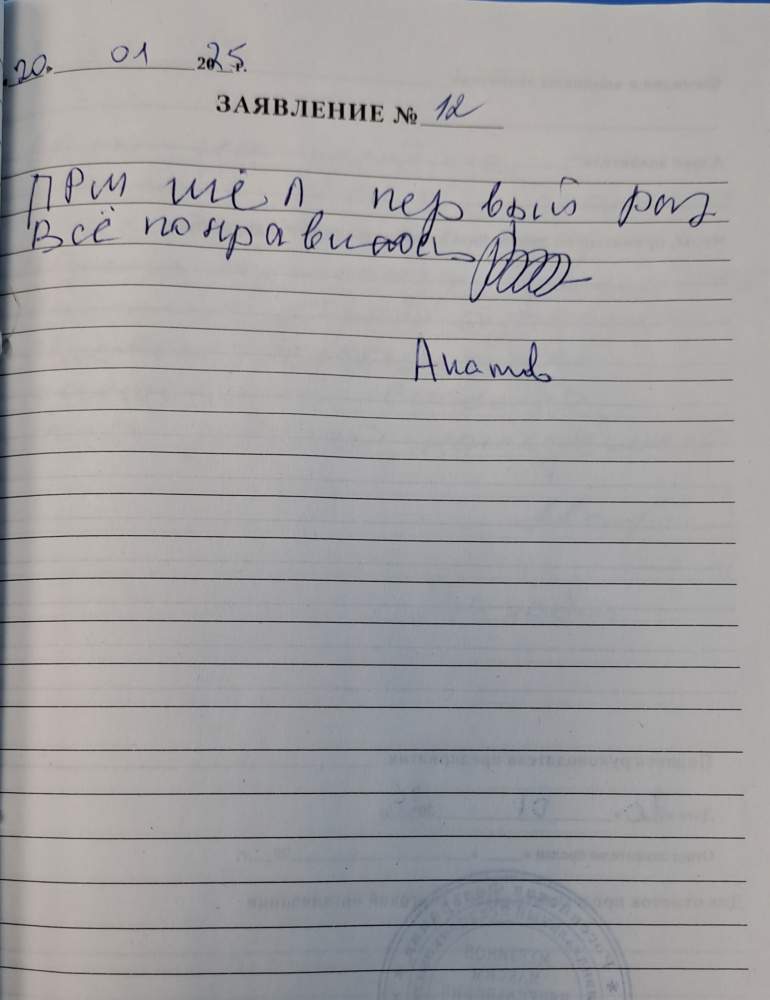 20. 01 2025 г.
ЗАЯВЛЕНИЕ № 12
ПРИ шёл первый раз
Всё понравилось